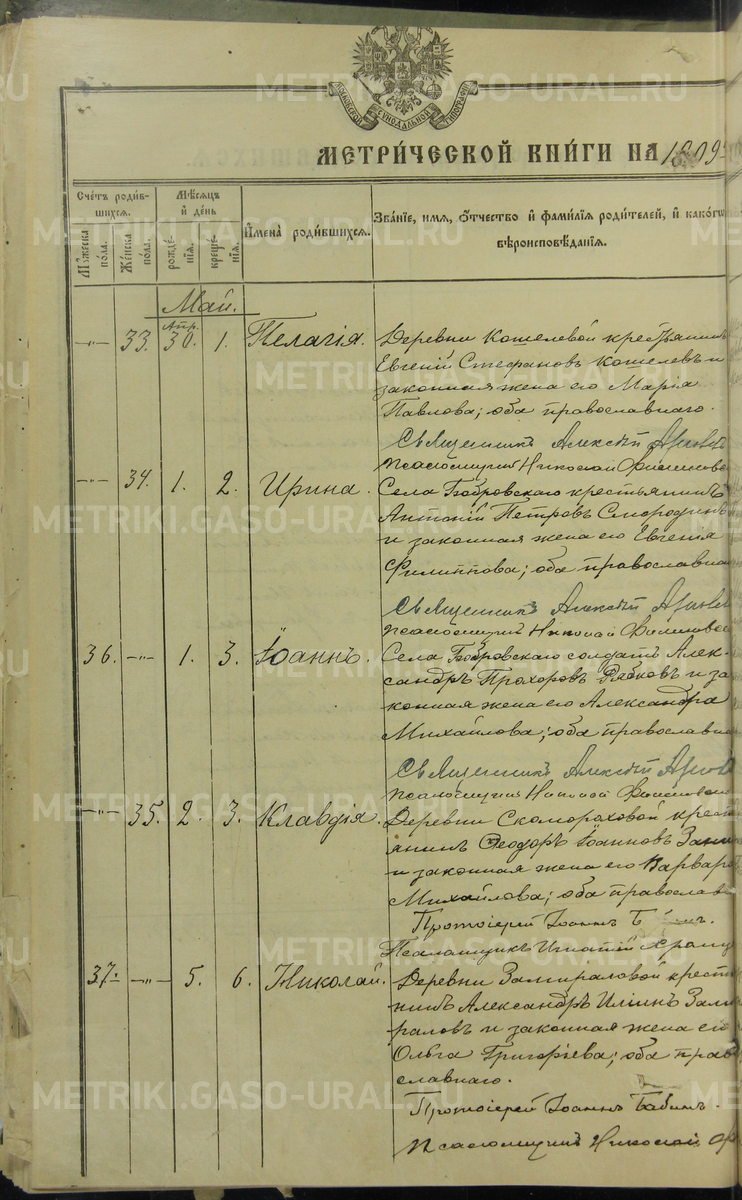 МОСКОВСКОЙ СУНОДАЛЬНОЙ ТИПОГРАФІИ
МЕТРИ́ЧЕСКОЙ КНИ́ГИ НА 1909
Сче́тъ роди́в-
шихся.
Мѣ́сяцъ
и҆ де́нь
Му́жеска
по́ла.
Же́нска
по́ла.
рожде́-
нїѧ.
креще́-
нїѧ.
И҆мена̀ роди́вшихся.
Зва́нїе, и҆́мѧ, ѻ҆́тчество и҆ фами́лїѧ роди́телей, и҆ како́гѡ
вѣроисповѣ́данїѧ.
Май.
Апр.
-„- 33. 30. 1. Пелагія.
Деревни Кошелевой крестьянинъ
Евгеній Стефановъ Кошелевъ и
законная жена его Марія
Павлова; оба православнаго.
Священникъ Алексѣй
Псаломщикъ Николай
-„- 34. 1. 2. Ирина.
Села Бобровскаго крестьянинъ
Антоній Петровъ Смородинъ
и законная жена его Евгенія
Филиппова; оба православна
Священникъ Алексѣй
Псаломщикъ Николай
36. -„- 1. 3. Іоаннъ.
Села Бобровскаго солдатъ Алек-
сандръ Прохоровъ Рябковъ и за
конная жена его Александра
Михайлова; оба православна
Священникъ Алексѣй
Псаломщикъ Николай
-„- 35. 2. 3. Клавдія.
Деревни Скомороховой крест
янинъ Ѳеодоръ Іоанновъ
и законная жена его Варвара
Михайлова; оба православ
Протоіерей Іоаннъ
Псаломщикъ Игнатій
37. -„- 5. 6. Николай.
Деревни Замираловой крест
нинъ Александръ Иліинъ Зами
раловъ и законная жена его
Ольга Григоріева; оба прав
славнаго.
Протоіерей Іоаннъ Бабинъ.
Псаломщикъ Николай
METRIKI.GASO-URAL.RU